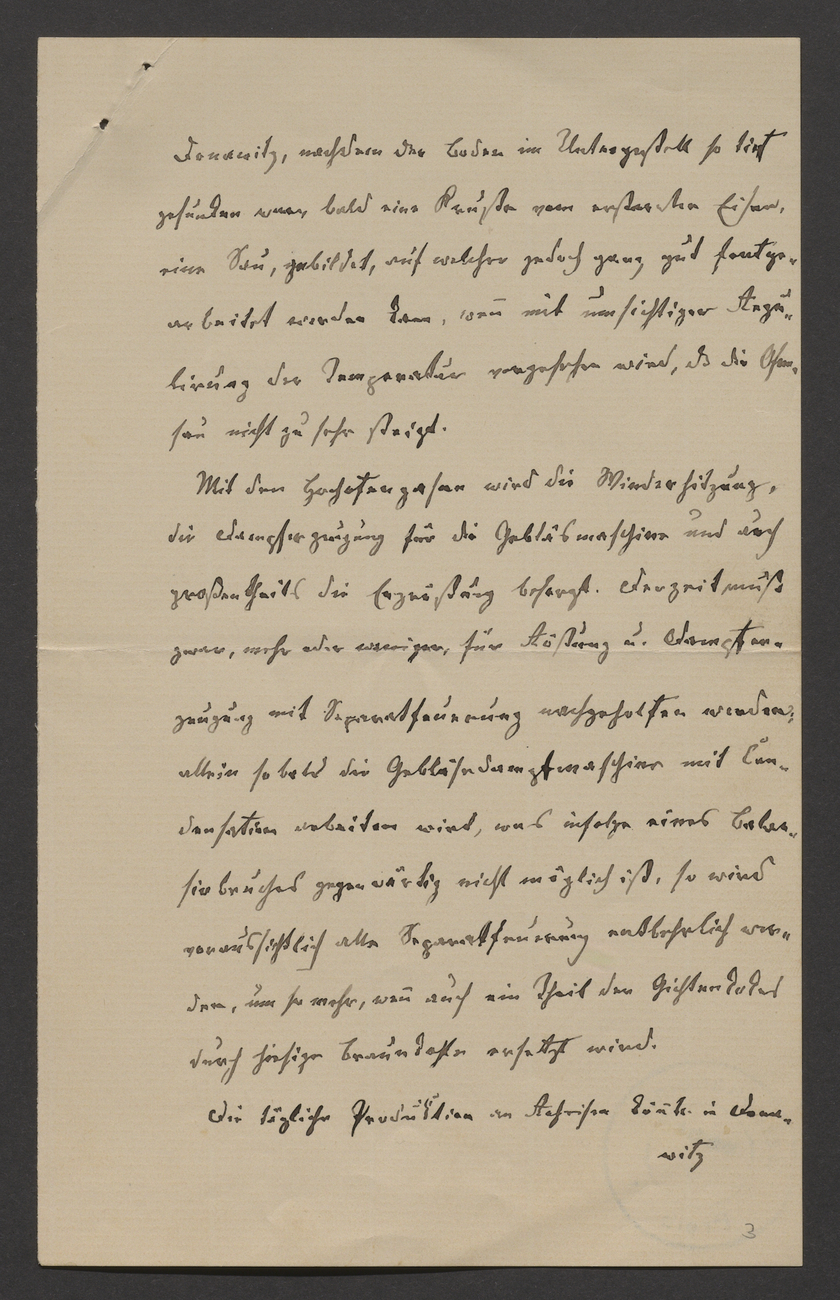 Donawitz, nachdem der Boden im Untergestell so tief
gesunken war, bald eine Kruste vom erstarrten Eisen,
eine Sau, gebildet, auf welcher jedoch ganz gut fortge-
arbeitet werden kann, wen̅ mit umsichtiger Regu-
lirung der Temperatur vorgesehen wird, dß die Ofen-
sau nicht zu sehr steigt.
Mit den Hochofengasen wird die Winderhitzung,
die Dampferzeugung für die Gebläsmaschine und auch
großentheils die Erzröstung besorgt. Derzeit muß
zwar, mehr oder weniger, für Röstung u. Dampfer-
zeugung mit Separatfeuerung nachgeholfen werden;
allein sobald die Gebläsedampfmaschine mit Con-
densation arbeiten wird, was infolge eines Balan-
sirbruches gegenwärtig nicht möglich ist, so wird
voraussichtlich alle Separatfeuerung entbehrlich wer-
den, um so mehr, wen̅ auch ein Theil der Gichtenkokes
durch hiesige Braunkohle ersetzt wird.
Die tägliche Produktion an Roheisen kön̅te in Dona-
witz
3